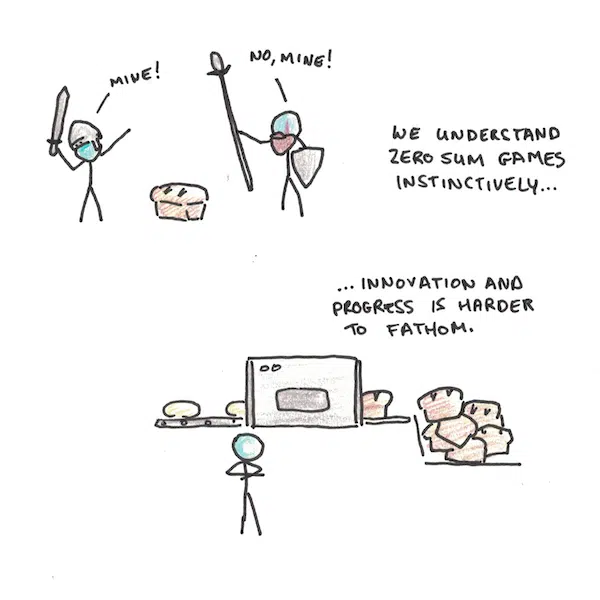 MINE!
NO, MINE!
WE UNDERSTAND
ZERO SUM GAMES
INSTINCTIVELY...
... INNOVATION AND
PROGRESS IS HARDER
TO FATHOM.